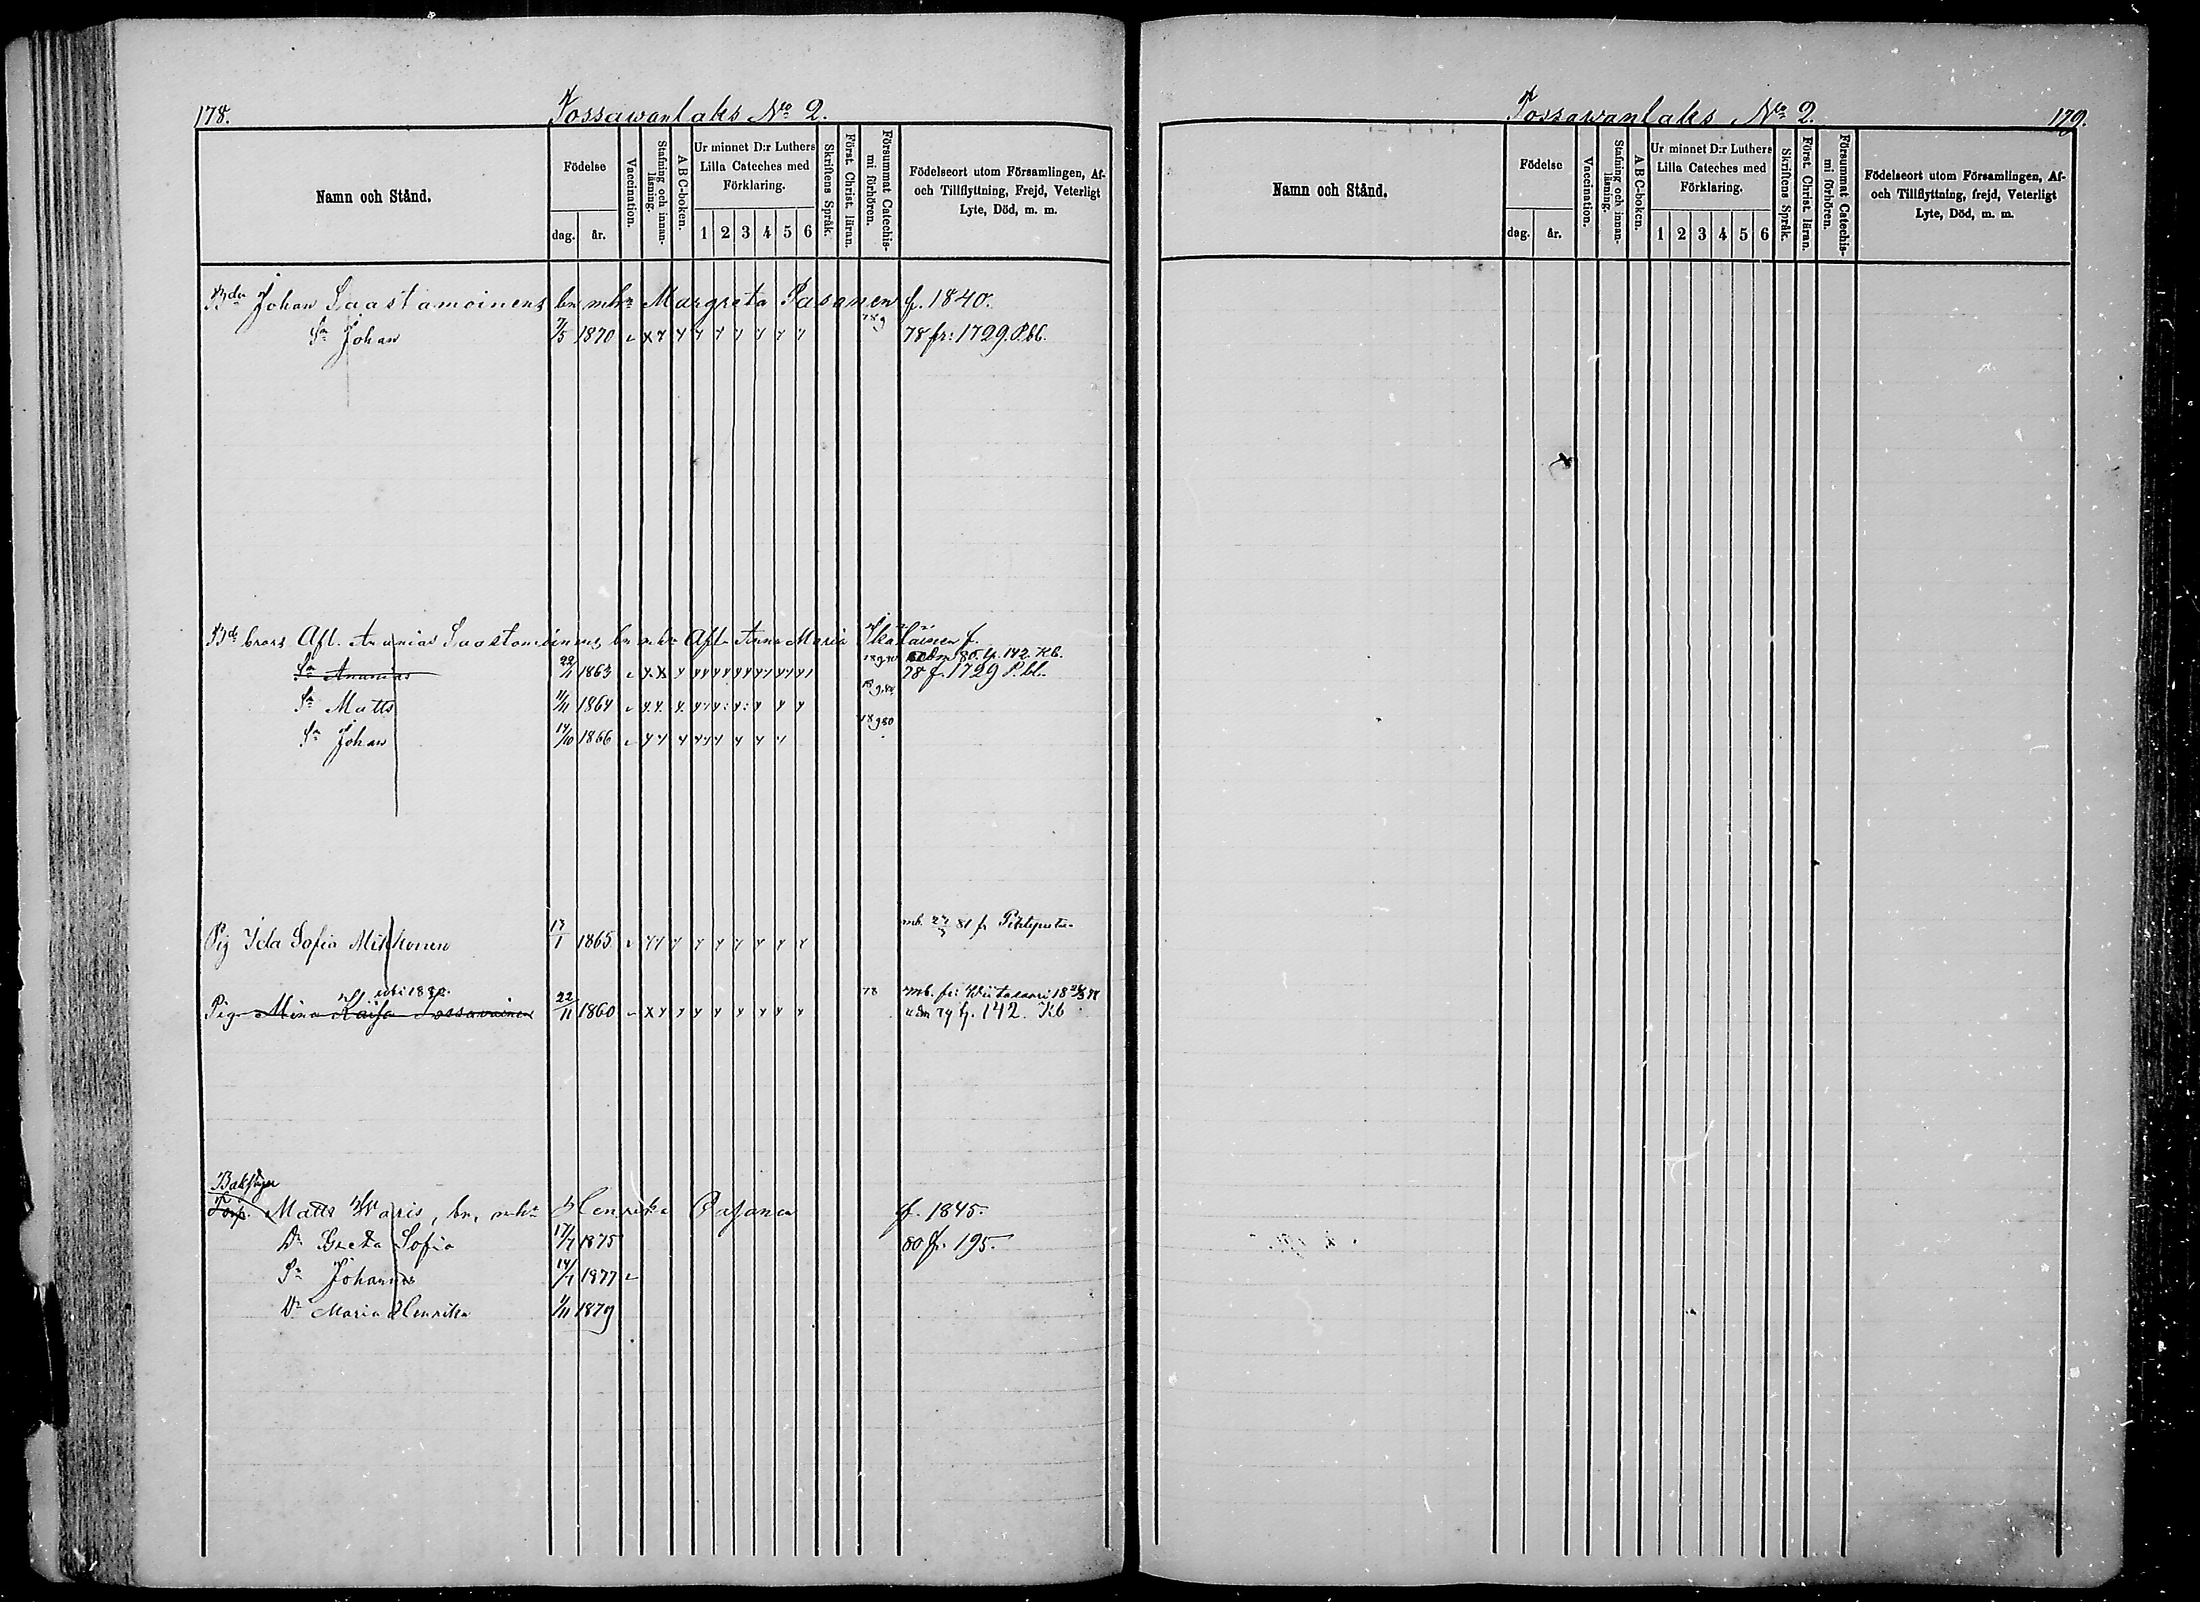 178.
Tossawanlaks No 2.
Namn och Stånd.
Födelse
dag. år.
Vaccination.
Stafning och innanläsning.
ABC-boken.
Ur minnet D:r Luthers Lilla Cateches med Förklaring.
1 2 3 4 5 6
Skriftens Språk.
Först. Christ. läran.
Försummat Catechismi förhören.
Födelseort utom Församlingen, Af- och Tillflyttning, Frejd, Veterligt Lyte, Död, m. m.
Johan Saastamoinens bn mhu Margreta Pasanen f. 1840.
Sn Johan 7/5 1870 78 fr: 1729. P.bl.
brors Afl. Ananias Saastamoinens bn mhu Afl. Anna Maria Ikäläinen f.
80 fr. 142 Kb.
Sn Ananias 22/1 1863 78 f. 1729 P.bl.
Sn Matts 11/11 1864
Sn Johan 14/10 1866
mb. 81 fr Pihtiputa
Pig Ida Sofia Mikkonen 13/1 1865
78 mb. fr: Wiitasaari
Pig Mina Kaisa Tossavainen 22/11 1860 142. Kb
Torp. Matts Waris, bn. mhu Henrika Pasanen f. 1845.
Dr Greta Sofia 17/7 1875 80 fr. 195.
Sn Johannes 14/1 1877
Dr Maria Henrika 1/11 1879
Tossawanlaks No 2.
179.
Namn och Stånd.
Födelse
dag. år.
Vaccination.
Stafning och innanläsning.
ABC-boken.
Ur minnet D:r Luthers Lilla Cateches med Förklaring.
1 2 3 4 5 6
Skriftens Språk.
Först. Christ. läran.
Försummat Catechismi förhören.
Födelseort utom Församlingen, Af- och Tillflyttning, frejd, Veterligt Lyte, Död, m. m.